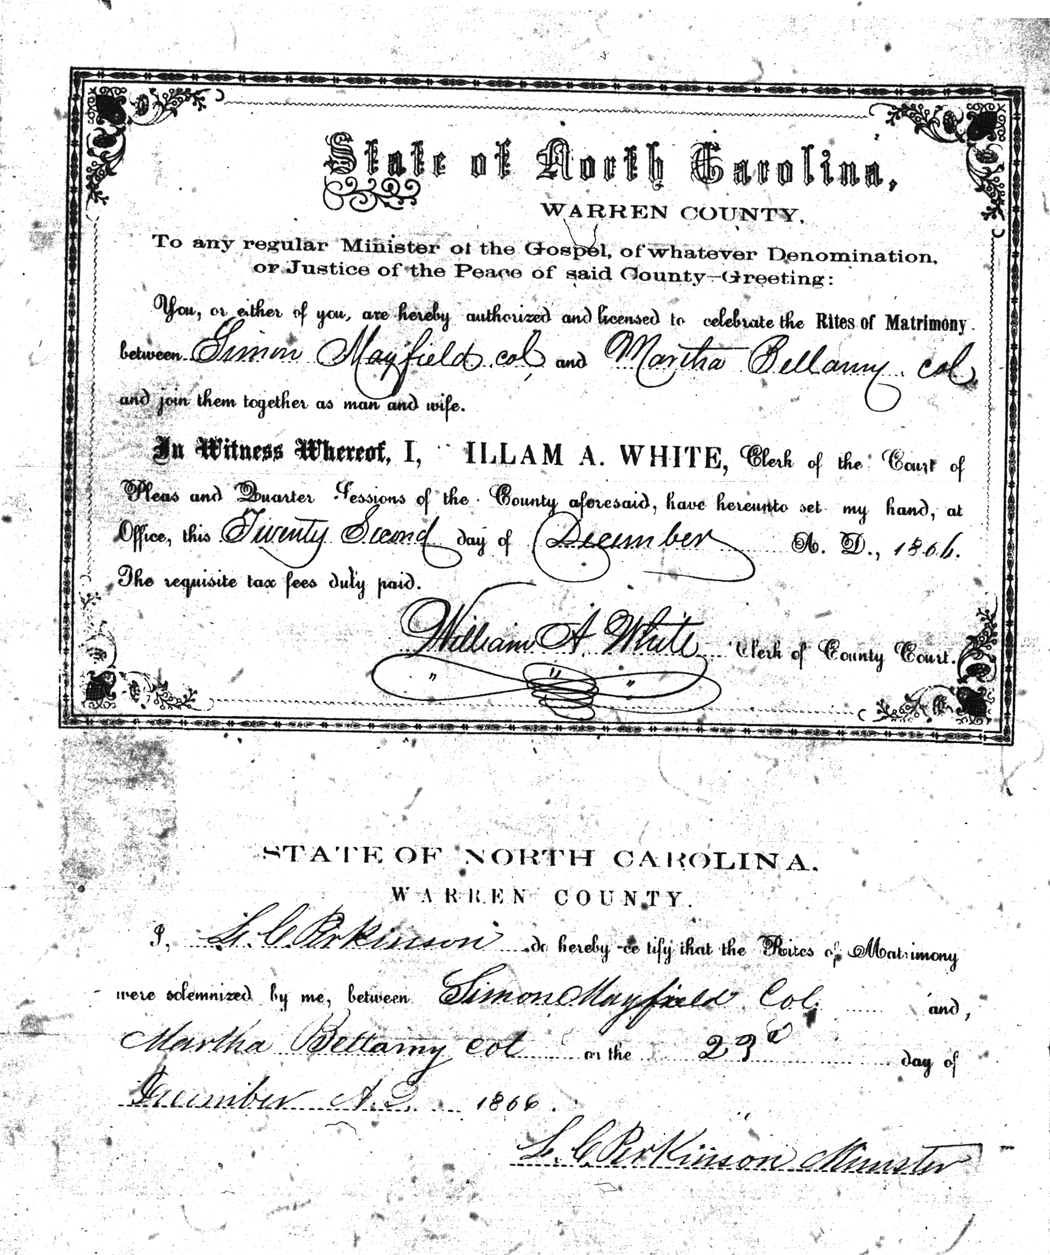 State of North Carolina,
WARREN COUNTY.
To any regular Minister of the Gospel, of whatever Denomination,
or Justice of the Peace of said County—Greeting:
You, or either of you, are hereby authorized and licensed to celebrate the Rites of Matrimony
between Simon Mayfield col and Martha Bellamy col,
and join them together as man and wife.
In Witness Whereof, I, ILLAM A. WHITE, Clerk of the Court of
Pleas and Quarter Sessions of the County aforesaid, have hereunto set my hand, at
Office, this Twenty Second day of December A. D., 1866.
The requisite tax fees duly paid.
William A. White Clerk of County Court.
STATE OF NORTH CAROLINA.
WARREN COUNTY.
I, L. C. Perkinson do hereby ce tify that the Rites of Matrimony
were solemnized by me, between Simon Mayfield Col. and,
Martha Bellamy col on the 23d day of
December A.D. 1866.
L. C. Perkinson Minister